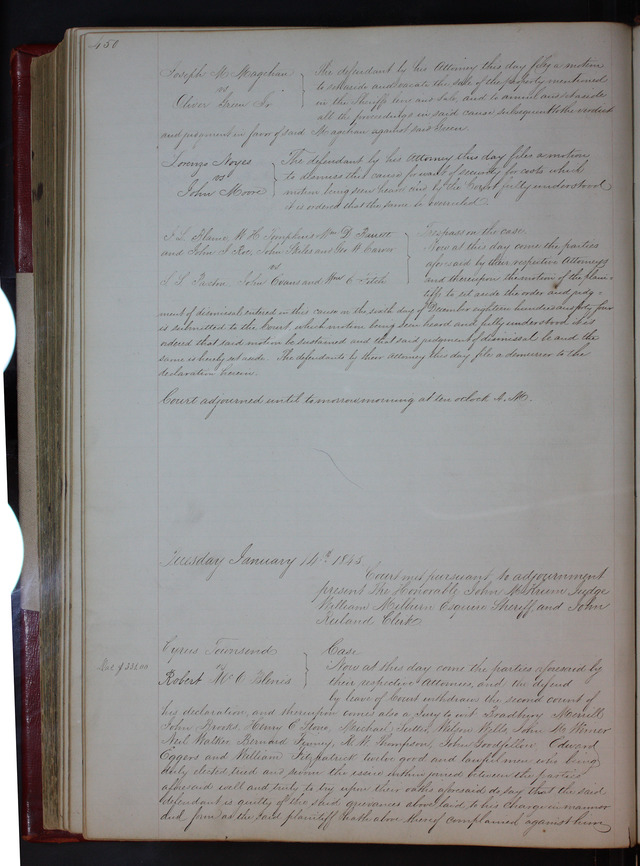 450
Joseph M. Magehan } The defendant by his Attorney this day files a motion
vs to set aside and vacate the sale of the property mentioned
Oliver Green Sr in the Sheriffs and sale, and to annul and set aside
all the proceedings in said cause subsequent to the verdict
and judgment in favor of said Magehan against said Green.
Lorenzo Noyes } The defendant by his Attorney this day files a motion
vs to dismiss this cause for want of security for costs which
John Moore motion being seen heard and by the Court fully understood
it is ordered that the same be overruled.
W. H. Tompkins Wm D. } Trespass on the case.
and John J. Roe, John Stiles and Geo W Carver Now at this day come the parties
vs aforesaid by their respective Attorneys
John Evans and Wm C Fitch and thereupon the motion of the plain-
tiffs to set aside the order and judg-
ment of dismissal entered in this cause on the sixth day of December eighteen hundred and forty four
is submitted to the Court which motion being seen heard and fully understood it is
ordered that said motion be sustained and that said judgment of dismissal be and the
same is hereby set aside. The defendants by their attorney this day file a demurrer to the
declaration herein.
Court adjourned until tomorrow morning at ten oclock A. M.
Tuesday January 14th 1845
Court met pursuant to adjournment
present The Honorable John M. Krum Judge
William Milburn Esquire Sheriff and John
Ruland Clerk
Cyrus Townsend } Case
vs Now at this day come the parties aforesaid by
Robert McO Blenis their respective Attornies, and the defend
by leave of Court withdraws the second count of
his declaration, and thereupon comes also a Jury to wit Bradbury Merrill
John Brooks, Henry C Stone, Michael Tuttle, Nelson Wells, John
Neil Walker Bernard Finney, R. H. Thompson, John Goodfellow Edward
Eggers and William Fitzpatrick twelve good and lawful men who being
duly elected tried and sworn the issue within joined between the parties
aforesaid well and truly to try upon their oaths aforesaid do say that the said
defendant is guilty of the said grievances above laid to his charge in manner
and form as the said plaintiff hath above thereof complained against him